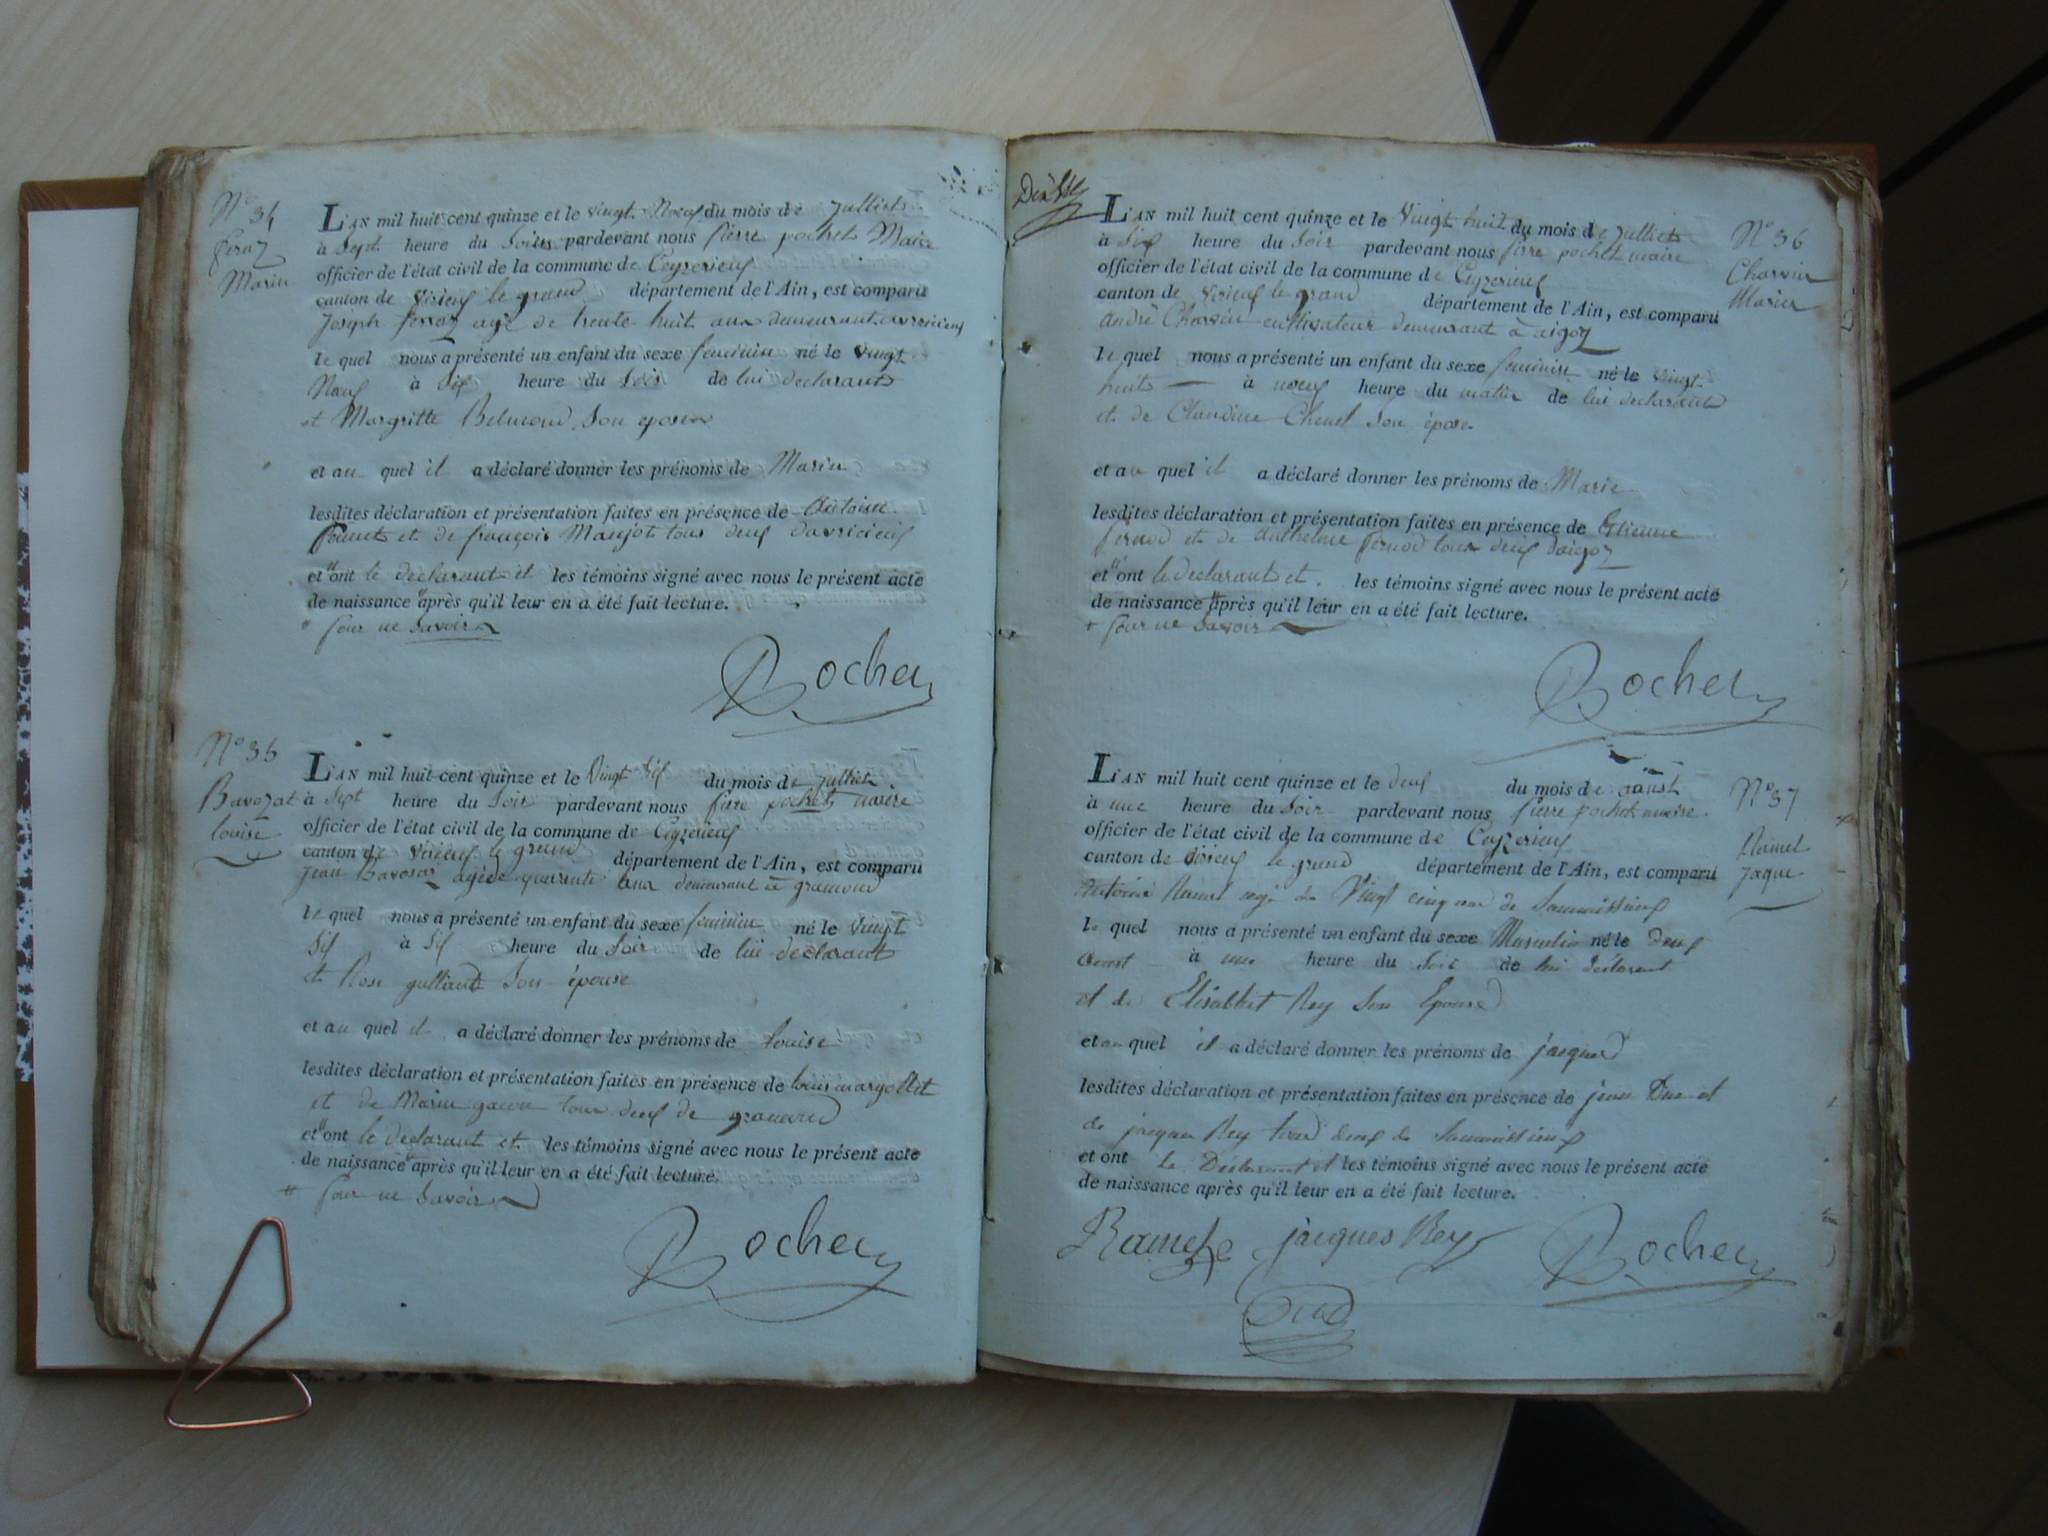 N° 34
feraz
Marie
L'AN mil huit cent quinze et le vingt Noeuf du mois de juilliet
à Sept heure du Soir pardevant nous pierre pochet Maire
officier de l'état civil de la commune de Ceyzerieuf
canton de virieuf le grand département de l'Ain, est comparu
Joseph ferraz agé de trente huit ans demeurant
le quel nous a présenté un enfant du sexe feminin né le vingt
Noeuf à Six heure du Soir de lui declarant
et Margritte Belmond Son epose
et au quel il a déclaré donner les prénoms de Marie
lesdites déclaration et présentation faites en présence de Antoine
et de françois Manjot tous deuf davricieuf
et ont le declarant et les témoins signé avec nous le présent acte
de naissance après qu'il leur en a été fait lecture.
pour ne Savoir
Pochet
N° 35
Bavozat
louise
L'AN mil huit cent quinze et le Vingt Sif du mois de juilliet
à Sept heure du Soir pardevant nous pierre pochet maire
officier de l'état civil de la commune de Ceyzerieuf
canton de virieuf le grand département de l'Ain, est comparu
jean Bavosat agé de quarente ans demeurant à gramond
le quel nous a présenté un enfant du sexe feminin né le vingt
Sif à Sif heure du Soir de lui declarant
et Rose gulland Son épouse
et au quel il a déclaré donner les prénoms de louise
lesdites déclaration et présentation faites en présence de louis margollet
et de Marin tous deuf de gramond
et ont le declarant et les témoins signé avec nous le présent acte
de naissance après qu'il leur en a été fait lecture.
pour ne Savoir
Pochet
L'AN mil huit cent quinze et le Vingt huit du mois de juilliet
à Six heure du Soir pardevant nous pierre pochet maire
officier de l'état civil de la commune de Ceyzerieuf
canton de virieuf le grand département de l'Ain, est comparu
andré Charvin cultivateur demeurant à aigoz
le quel nous a présenté un enfant du sexe feminin né le vingt
huit à noeuf heure du matin de lui declarant
et de Claudine Chenel Son épose
et au quel il a déclaré donner les prénoms de Marie
lesdites déclaration et présentation faites en présence de Etienne
pernod et de Anthelme pernod tous deuf daigoz
et ont le declarant et les témoins signé avec nous le présent acte
de naissance après qu'il leur en a été fait lecture.
pour ne Savoir
Pochet
N° 36
Charvin
Marie
L'AN mil huit cent quinze et le deuf du mois de aoust
à une heure du Soir pardevant nous pierre pochet maire
officier de l'état civil de la commune de Ceyzerieuf
canton de virieuf le grand département de l'Ain, est comparu
antoine Ramel agé de Vingt cinq ans de
le quel nous a présenté un enfant du sexe Masculin né le deuf
aoust à une heure du Soir de lui déclarant
et de Elisabhet Rey Son Epouse
et au quel il a déclaré donner les prénoms de jacque
lesdites déclaration et présentation faites en présence de jean Duc et
de jacque Rey tous deuf de
et ont le Déclarant et les témoins signé avec nous le présent acte
de naissance après qu'il leur en a été fait lecture.
Ramel jacques Rey Pochet
Duc
N° 37
Ramel
jaque